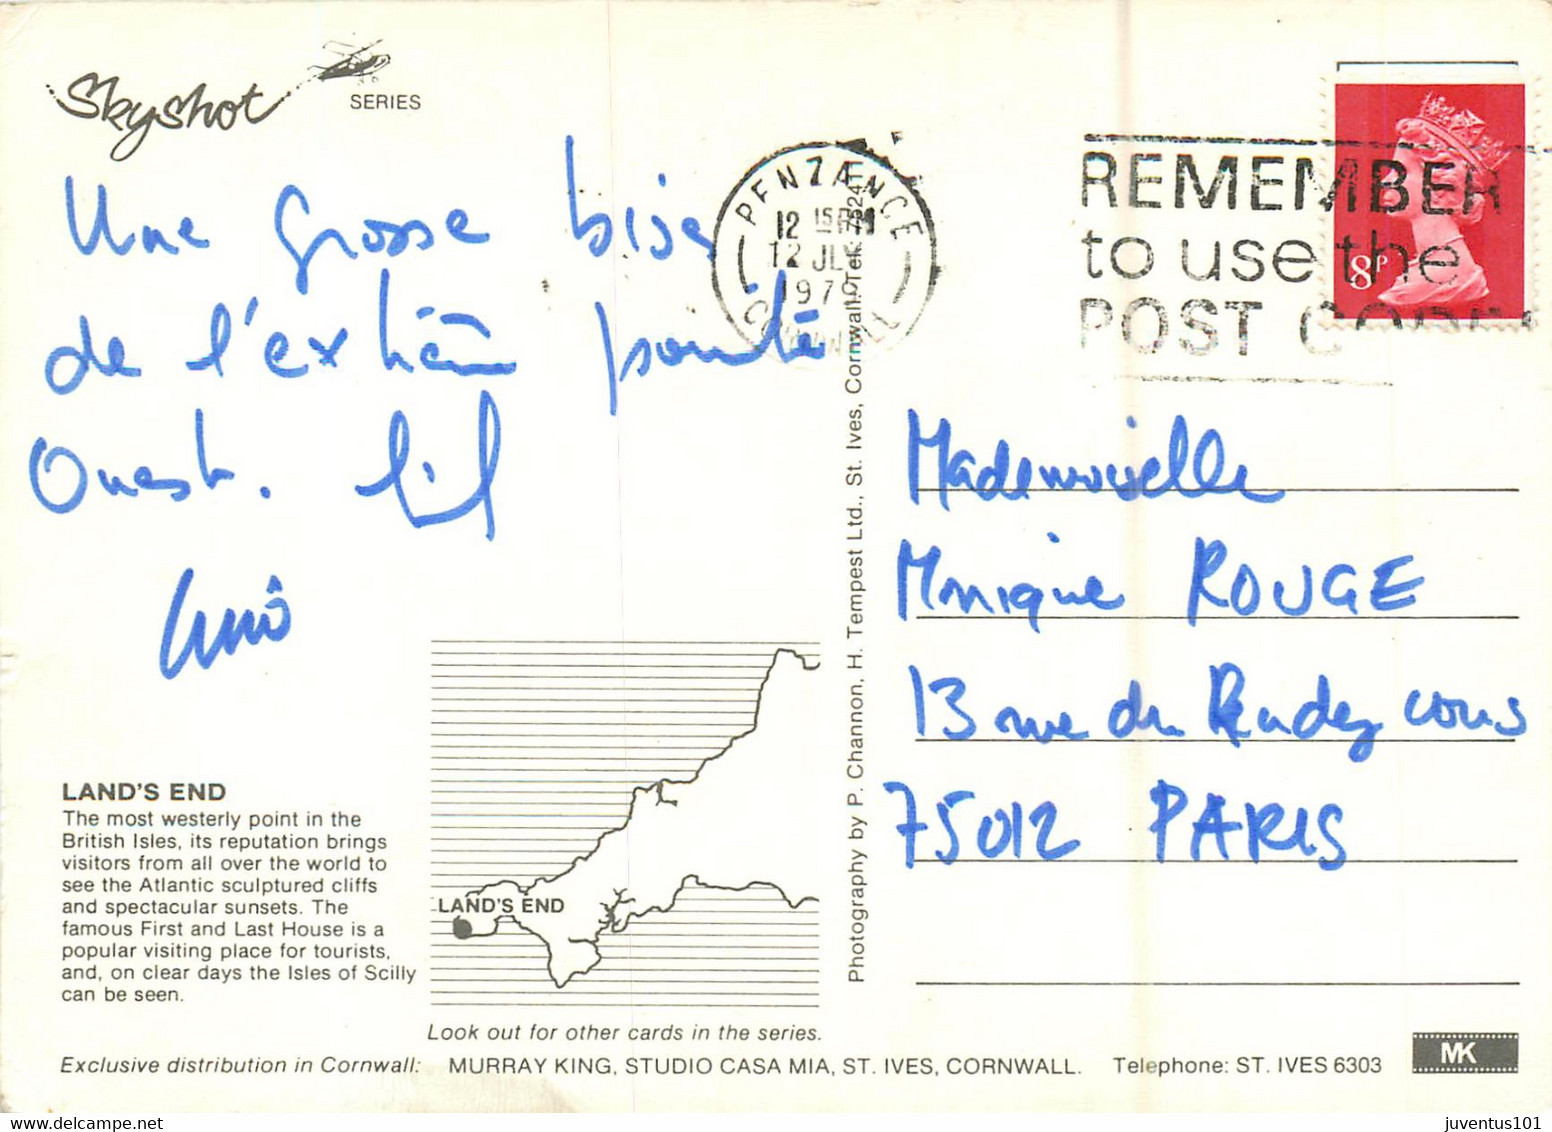 Skyshot
SERIES
Une grosse bise
de l'extrême pointe
Ouest.
PENZANCE
12 15 PM
12 JLY
197
CORNWALL
REMEMBER
to use the
POST CODE
8P
Mademoiselle
Monique ROUGE
13 rue du Rendez vous
75012 PARIS
LAND'S END
The most westerly point in the
British Isles, its reputation brings
visitors from all over the world to
see the Atlantic sculptured cliffs
and spectacular sunsets. The
famous First and Last House is a
popular visiting place for tourists,
and, on clear days the Isles of Scilly
can be seen.
LAND'S END
Look out for other cards in the series.
Photography by P. Channon, H. Tempest Ltd., St. Ives, Cornwall. Tel.
Exclusive distribution in Cornwall: MURRAY KING, STUDIO CASA MIA, ST. IVES, CORNWALL. Telephone: ST. IVES 6303
MK
juventus101